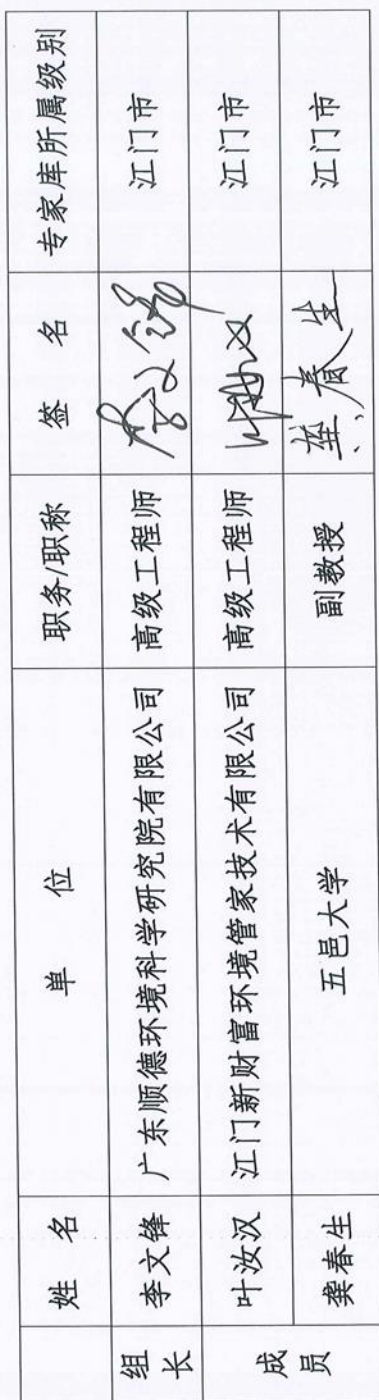 姓 名 单 位 职务/职称 签 名 专家库所属级别
组长 李文锋 广东顺德环境科学研究院有限公司 高级工程师 李文锋 江门市
成员 叶汝汉 江门新财富环境管家技术有限公司 高级工程师 叶汝汉 江门市
龚春生 五邑大学 副教授 龚春生 江门市